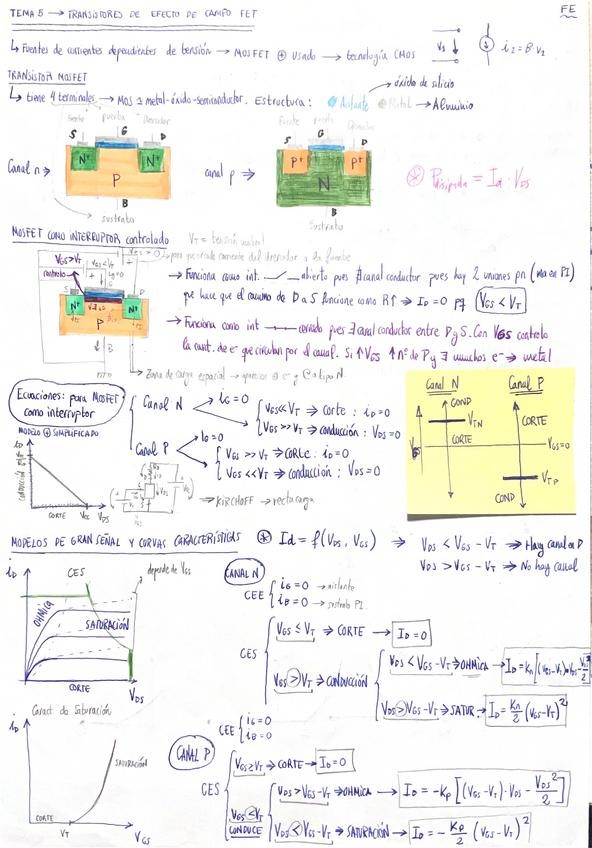 TEMA 5 → TRANSISTORES DE EFECTO DE CAMPO FET
FE
↳ Fuentes de corrientes dependientes de tensión → MOSFET ⊕ usado → tecnología CMOS
V₁
i₂ = B V₂
TRANSISTOR MOSFET
óxido de silicio
↳ tiene 4 terminales → MOS ≡ metal-óxido-semiconductor. Estructura : Aislante Metal → Aluminio
Fuente puerta Drenador
S G D
N⁺ N⁺
Canal n ⇒
P
B
sustrato
Fuente puerta Drenador
S G D
P⁺ P⁺
canal p ⇒
N
B
Sustrato
⊛ Pdisipada = Id · VDS
MOSFET COMO INTERRUPTOR controlado
VT = tensión umbral
VGS>VT
controlo
VGS<VT
S D
N⁺ N⁺
P
B
→ Funciona como int. abierto pues ∄ canal conductor pues hay 2 uniones pn (una en PI)
que hace que el camino de D a S funcione como Rf ⇒ ID = 0 pq VGS < VT
→ Funciona como int cerrado pues ∃ canal conductor entre D y S. Con VGS controlo
la cant. de e⁻ que circulan por el canal. Si ↑VGS ↑ nº de P y ∃ muchos e⁻ ⇒ metal
Zona de carga espacial →
Ecuaciones: para MOSFET
como interruptor
Canal N
iG = 0
VGS<< VT ⇒ corte : iD = 0
VGS >> VT ⇒ conducción : VDS = 0
Canal P
iG = 0
VGS >> VT ⇒ corte : iD = 0
VGS << VT ⇒ conducción : VDS = 0
MODELO ⊕ SIMPLIFICADO
iD
CONDUCCIÓN
CORTE VCC VDS
⇒ KIRCHOFF → recta carga
Canal N Canal P
COND
CORTE
VTN
CORTE
VGS
VGS=0
VTP
COND
MODELOS DE GRAN SEÑAL Y CURVAS CARACTERÍSTICAS
⊛ Id = f(VDS, VGS) ⇒ VDS < VGS - VT ⇒ Hay canal en D
VDS > VGS - VT ⇒ No hay canal
iD
CES
depende de VGS
OHMICA
SATURACIÓN
CORTE
VDS
CANAL N
CEE
iG = 0 → aislante
iB = 0 → sustrato PI.
CES
VGS ≤ VT ⇒ CORTE → ID = 0
VGS > VT ⇒ CONDUCCIÓN
VDS < VGS - VT ⇒ OHMICA → ID = Kn[(VGS-VT)·VDS - VDS²/2]
VDS > VGS - VT ⇒ SATUR. → ID = Kn/2 (VGS-VT)²
Caract de Saturación
iD
SATURACIÓN
CORTE
VT
VGS
CEE
iG = 0
iB = 0
CANAL P
CES
VGS ≥ VT ⇒ CORTE → ID = 0
VGS < VT
CONDUCE
VDS > VGS - VT ⇒ OHMICA → ID = -Kp [(VGS - VT) · VDS - VDS²/2]
VDS < VGS - VT ⇒ SATURACIÓN → ID = - Kp/2 (VGS - VT)²